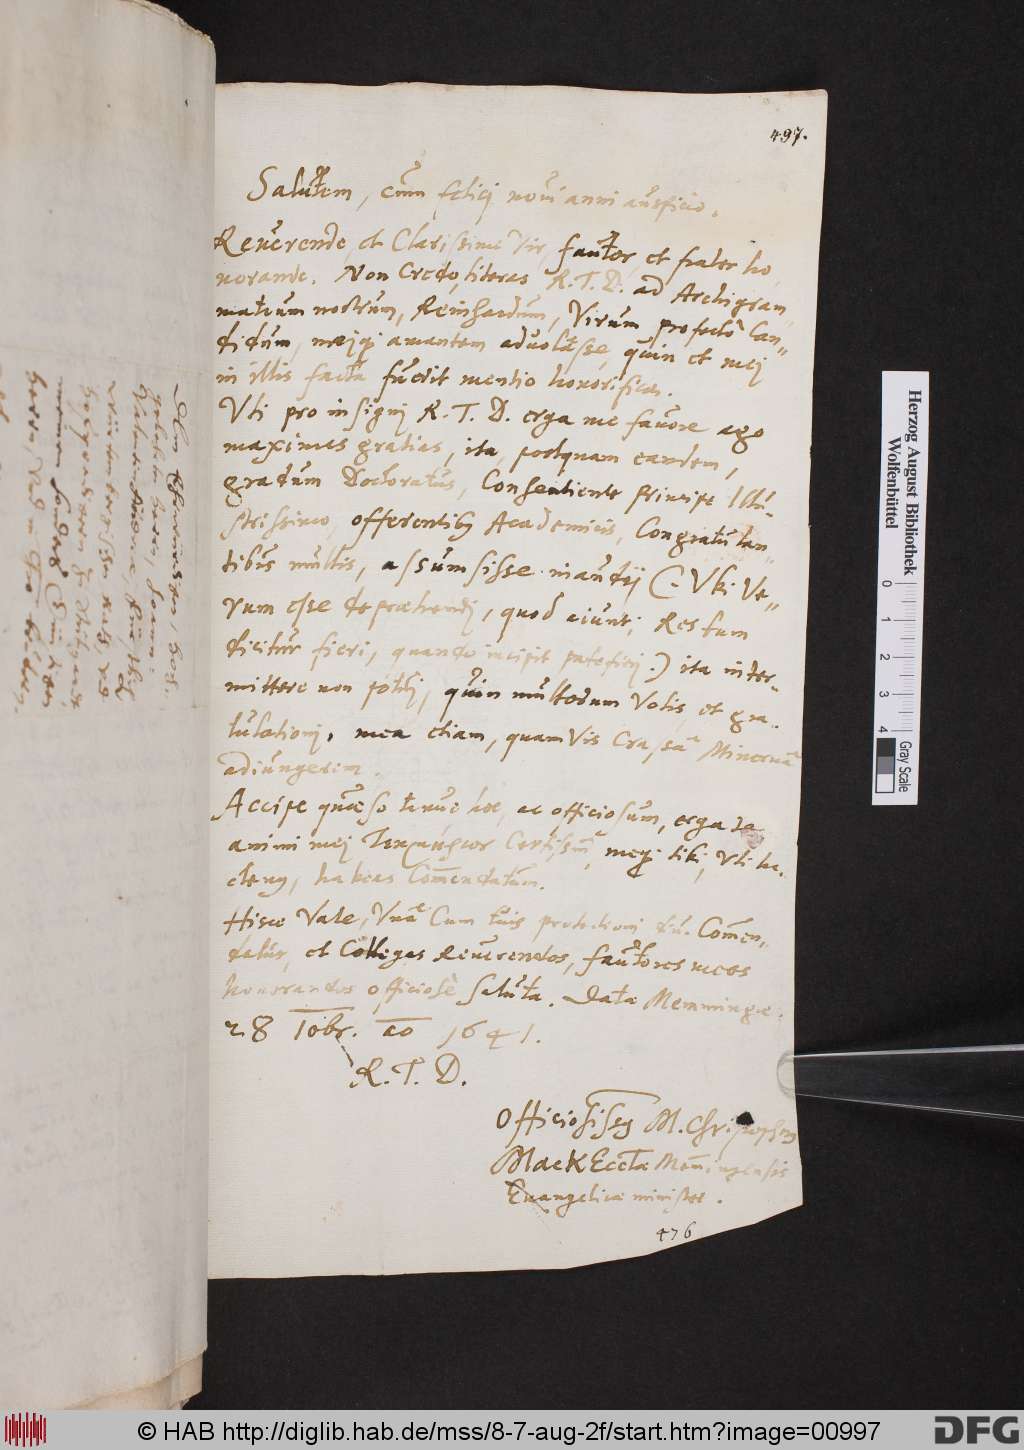 497.
Salutem, cum felici novi anni auspicio.
Reuerende, et Clarissime Vir, fautor, et frater ho,
norande. Non Credo, literas R. T. D. ad Archigram„
mateum nostrum, Reinhardum, Virum profectò Can„
didum, meiq; amantem advolâsse, quin et mej
in illis facta fuerit mentio honorifica.
Vti pro insignj R. T. D. erga me favore ago
maximas gratias, ita, postquam eandem,
gradum Doctoratus, Consentiente Principe Illu„
strissimo, offerentibus Academicis, Congratulan„
tibus multis, assumsisse inaudij (: Vbi Ve„
rum esse depraehendj, quod aiunt; Res tum
dicitur fieri, quando incipit patefierj.) ita inter„
mittere non potuj, quin multorum Votis, et gra„
tulationj, mea etiam, quamvis Crassâ Minervâ
adiungerem.
Accipe quaeso tenue hoc, ac officiosum, erga te
animi mej , meq; tibi, Vti ha„
ctenus, habeas Com̄endatum.
Hisce Vale, Vnà Cum tuis protectioni div. Com̄en„
datus, et Collegas Reuerendos, fautores meos
honorandos officiosè saluta. Data Memmingae.
28 10br. ao 1641.
R. T. D.
Officiosissimus M. Christophorus
Mack Eccl̄ae Mem̄ingensis
Evangelicae minister.
476
Herzog August Bibliothek
Wolfenbüttel
0 1 2 3 4
Gray Scale
© HAB http://diglib.hab.de/mss/8-7-aug-2f/start.htm?image=00997
DFG